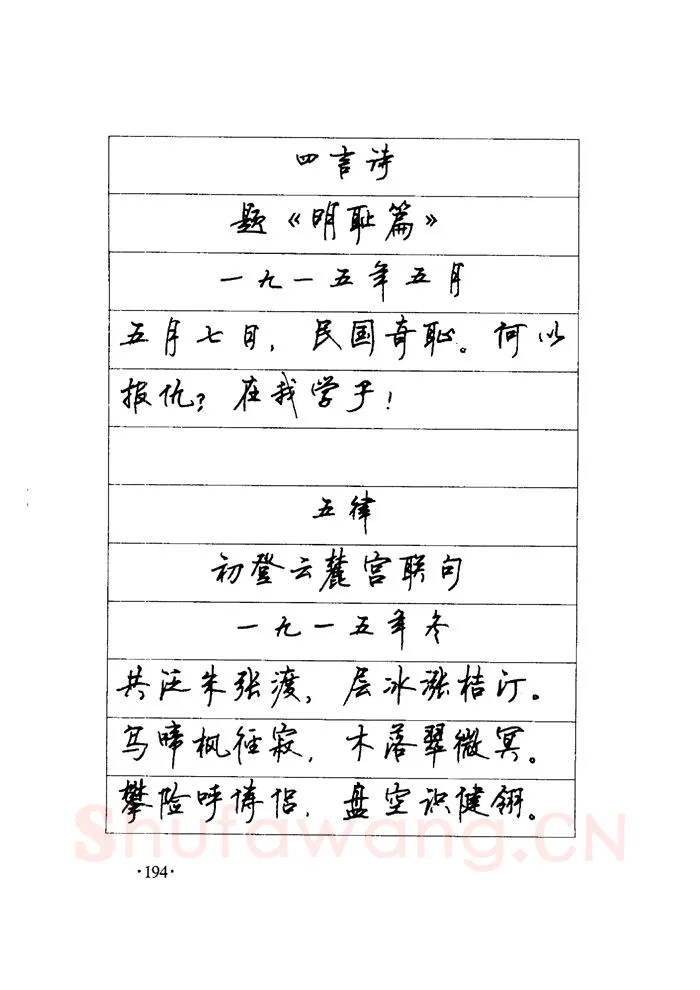 四言诗
题《明耻篇》
一九一五年五月
五月七日，民国奇耻。何以
报仇？在我学子！
五律
初登云麓宫联句
一九一五年冬
共泛朱张渡，层冰涨桔汀。
鸟啼枫径寂，木落翠微冥。
攀险呼俦侣，盘空识健翎。
Shufawang.CN
·194·